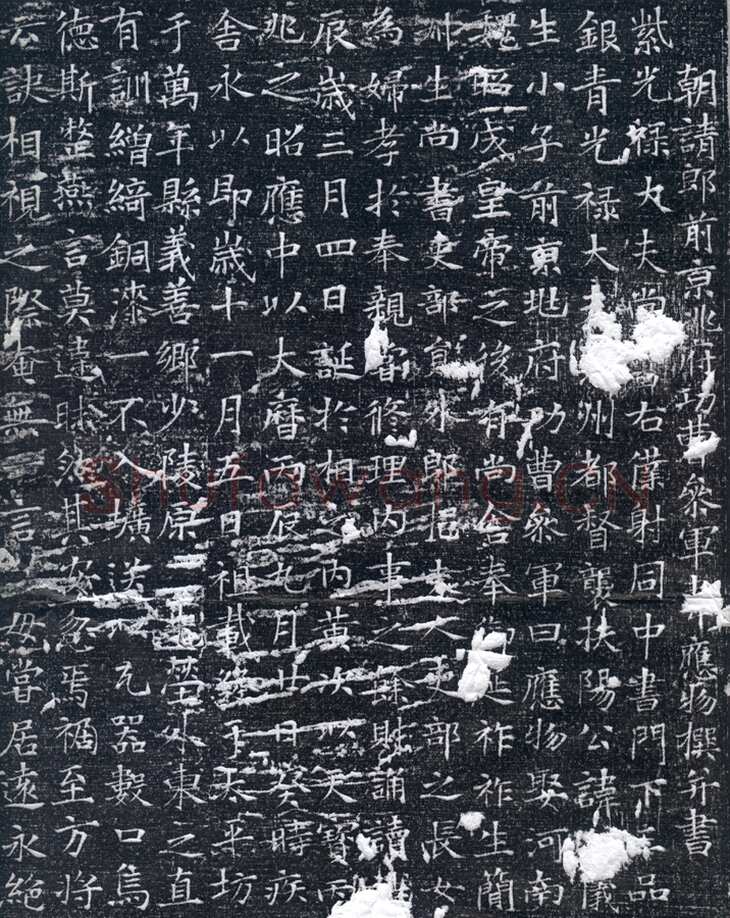 朝請郎前京兆府功曹參軍應物撰并書
紫光祿大夫尚書右僕射同中書門下品
銀青光祿大州都督襲扶陽公諱儀
生小子前京兆府功曹參軍曰應物娶河南
魏昭成皇帝之後有尚舍奉御延祚祚生簡
州生尚書吏部員外郎挹夫人吏部之長女
為婦孝於奉親修理內事之餘則誦讀
辰歲三月四日誕於相之內黃次以天寶丙
兆之昭應中以大曆丙辰九月廿日癸時疾
舍永以即歲十一月五日祖載終于太平坊
于萬年縣義善鄉少陵原水東之直
有訓繒綺銅漆一不入壙送以瓦器數口烏
德斯整燕言莫違昧然其安忽焉禍至方將
云訣相視之際奄無一言毋嘗居遠永絕
Shufawang.CN